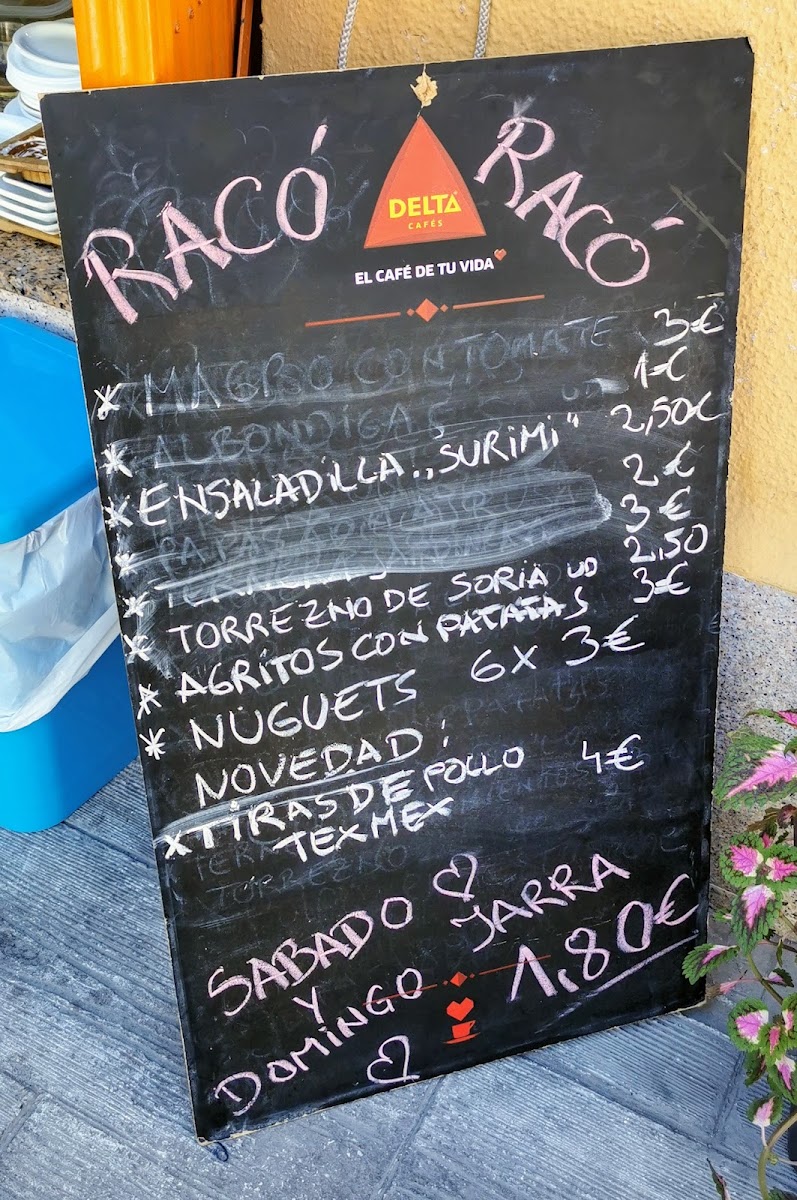 RACÓ RACÓ
DELTA
CAFÉS
EL CAFÉ DE TU VIDA
* MAGRO CON TOMATE 3€
* ALBONDIGAS UD 1€
* ENSALADILLA "SURIMI" 2,50€
* 2€
* 3€
* TORREZNO DE SORIA UD 2,50
* AGRITOS CON PATATAS 3€
* NUGUETS 6X 3€
NOVEDAD!
* TIRAS DE POLLO 4€
TEXMEX
SABADO JARRA
Y 1,80€
DOMINGO